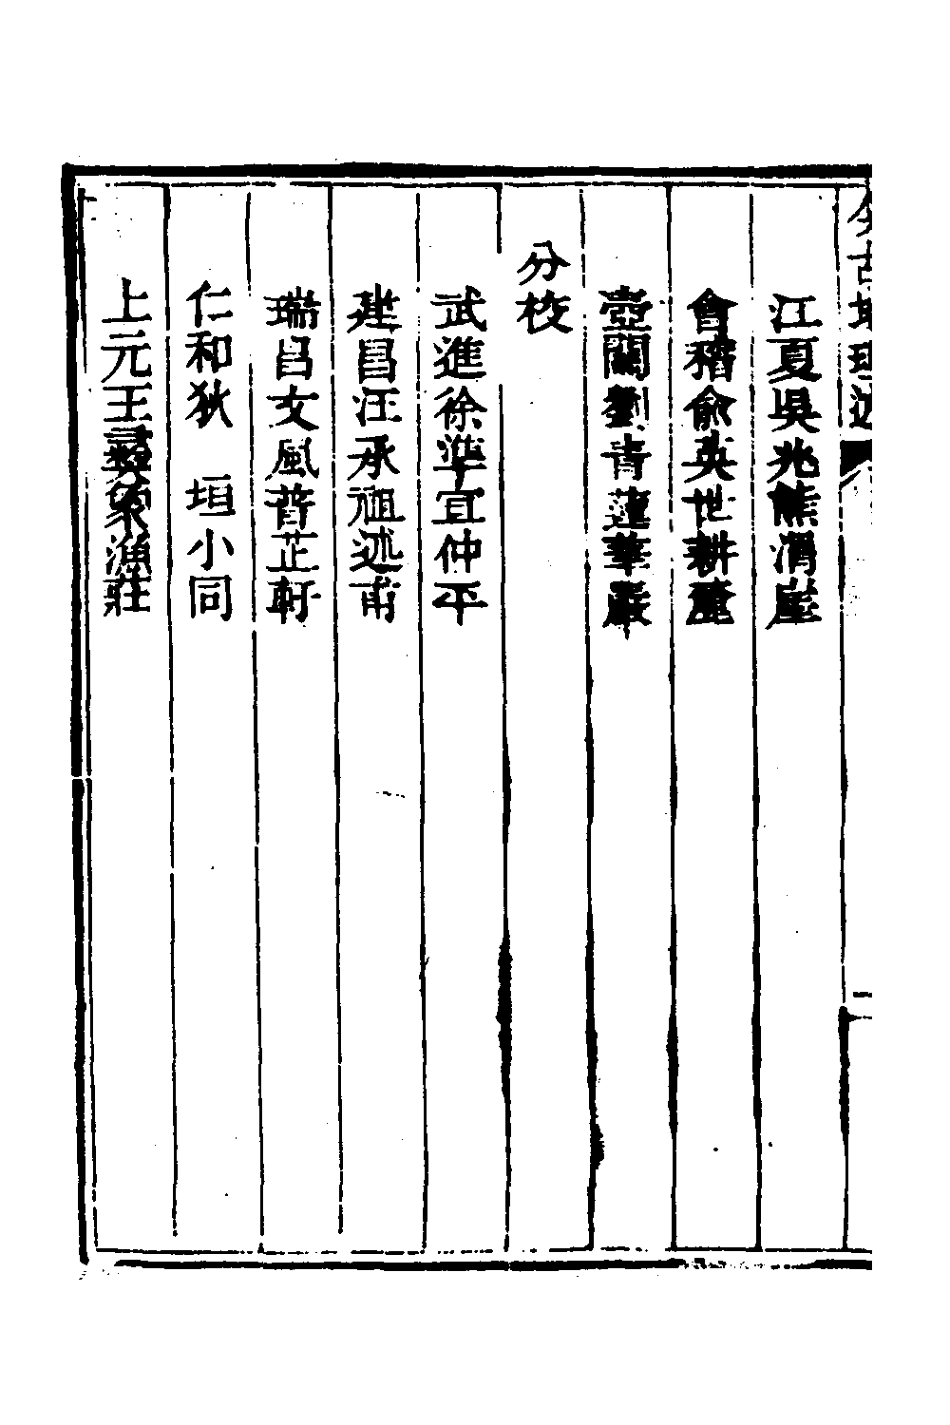 今古地理述
江夏吳兆熊渭崖
會稽俞英世耕
壺關劉青蓮華巖
分校
武進徐準宜仲平
建昌汪承祖述甫
瑞昌文風普芷軒
仁和狄　垣小同
上元王彝象漁莊